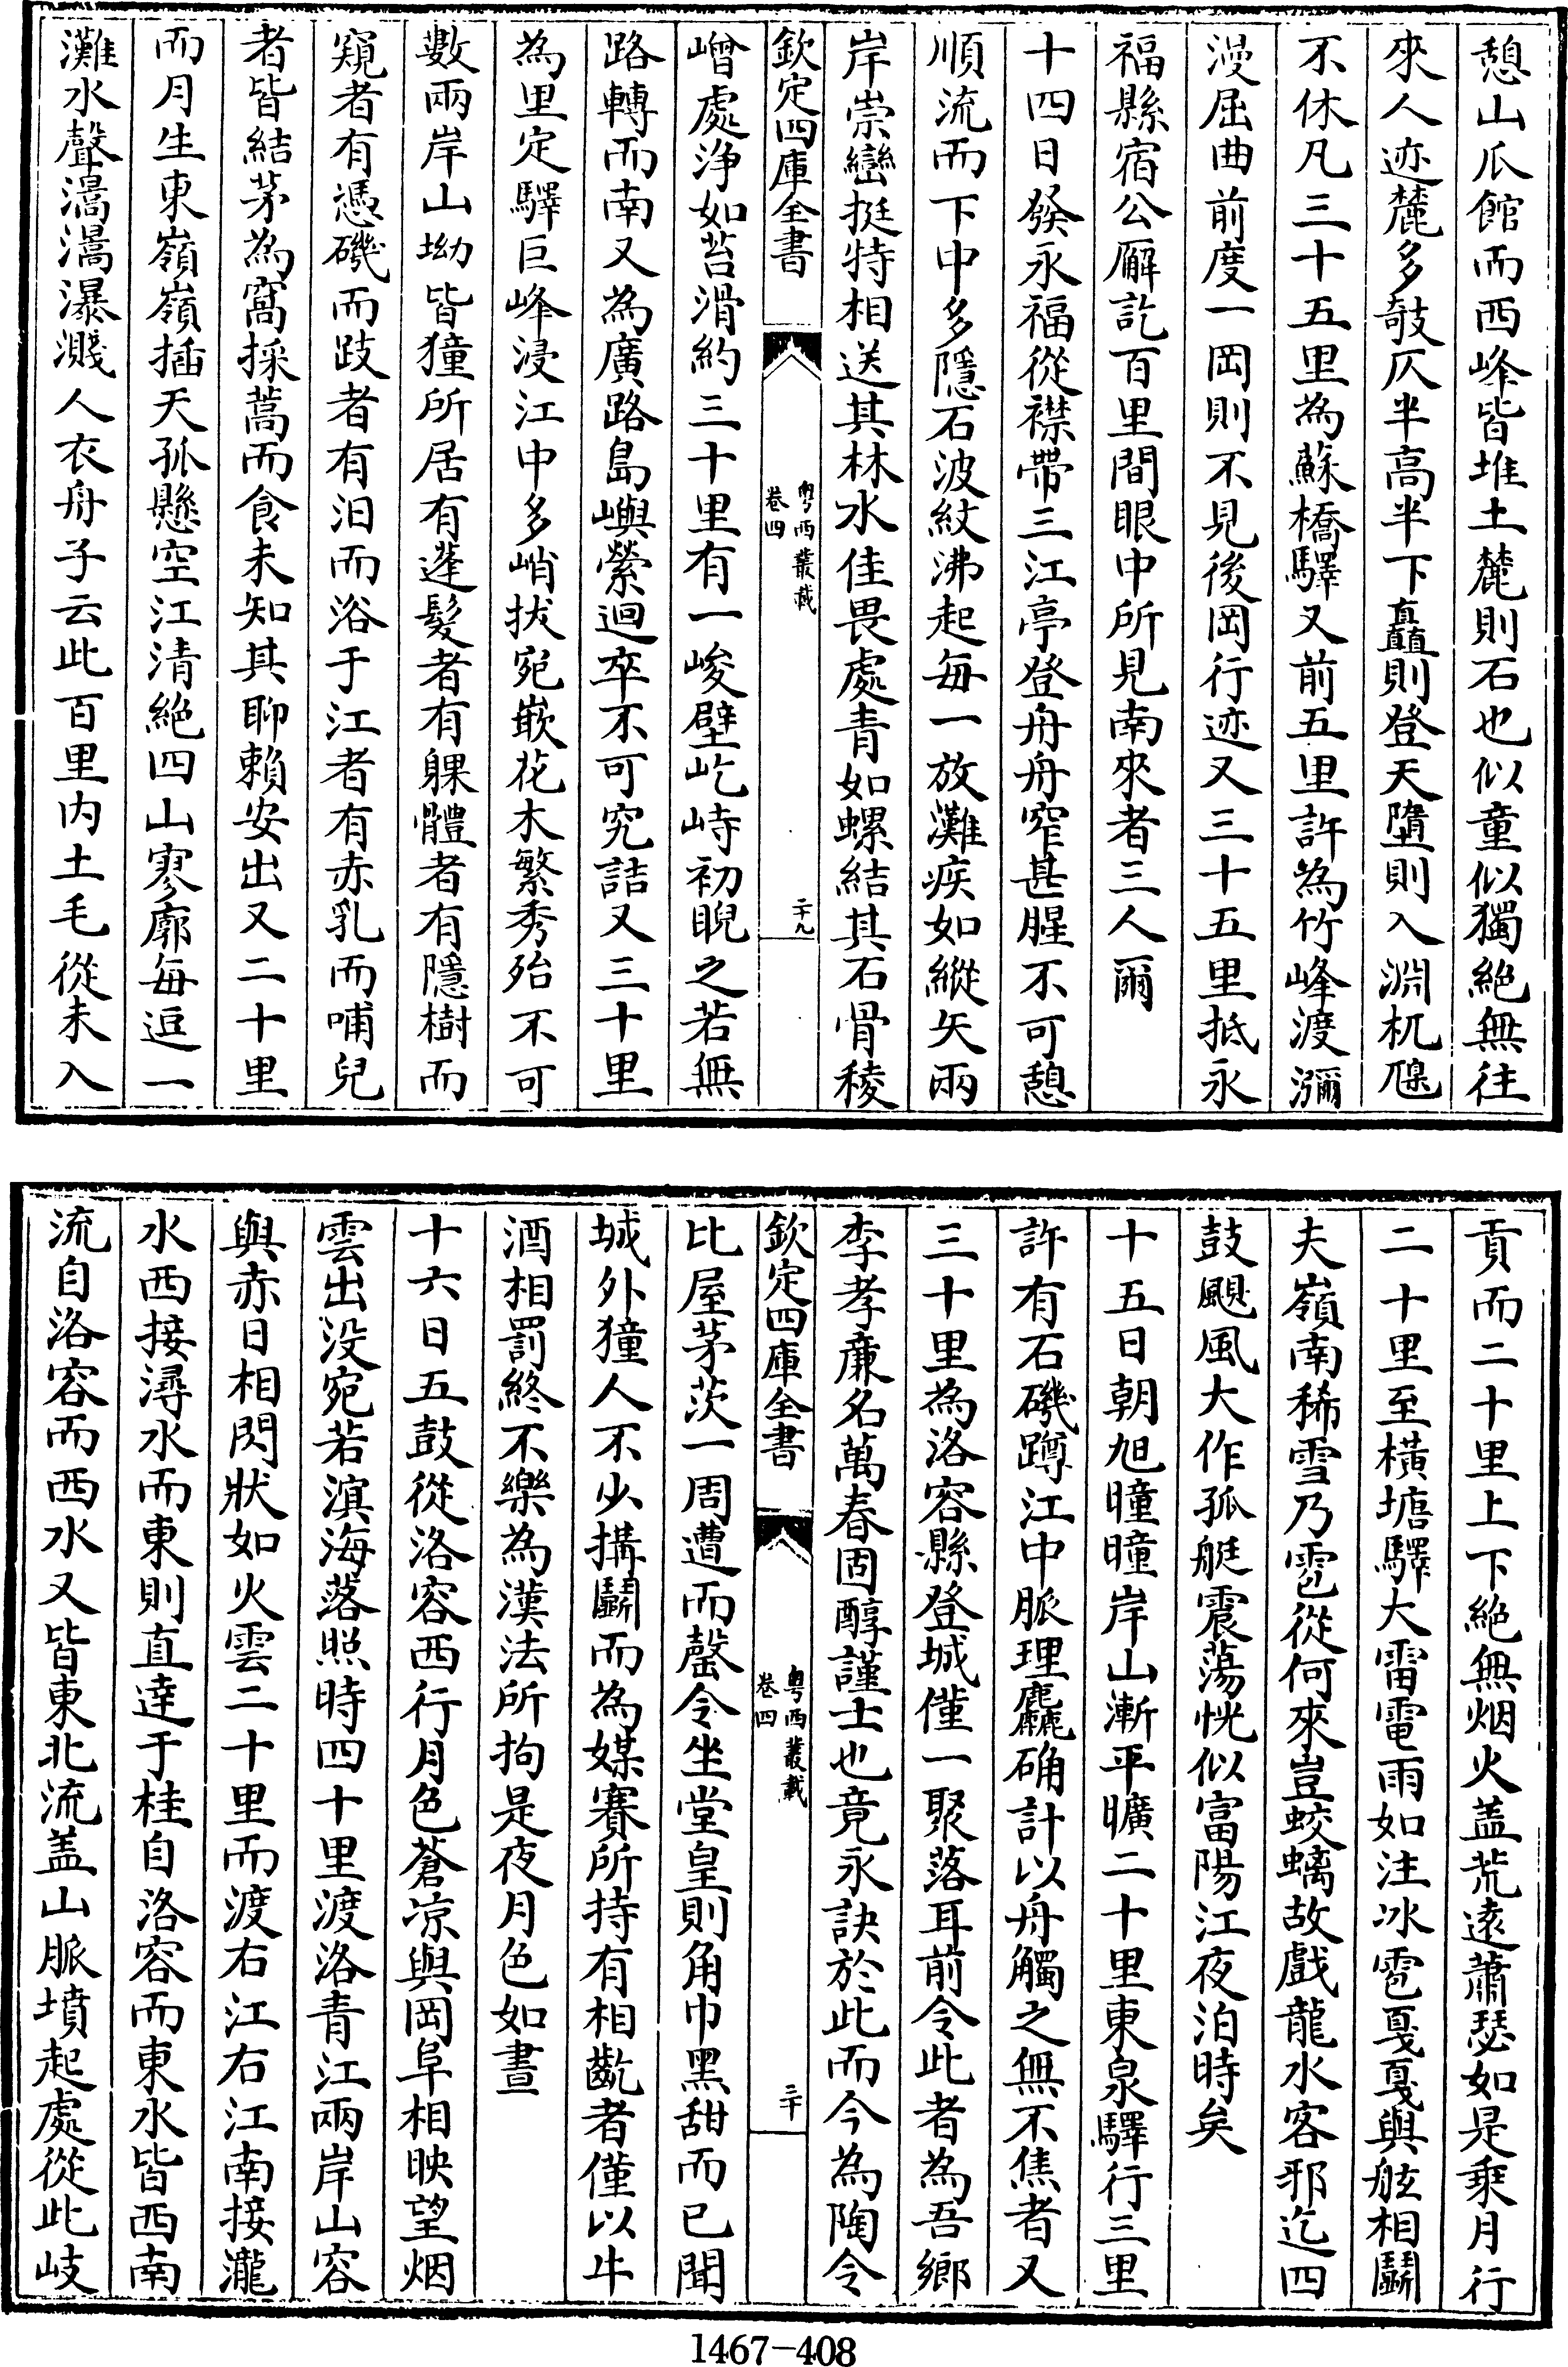 憩山爪館而西峰皆堆土麓則石也似童似獨絕無往
來人迹麓多攲仄半高半下矗則登天墮則入淵杌隉
不休凡三十五里為蘇橋驛又前五里許為竹峰渡瀰
漫屈曲前度一岡則不見後岡行迹又三十五里抵永
福縣宿公廨訖百里間眼中所見南來者三人爾
十四日發永福從襟帶三江亭登舟舟窄甚腥不可憩
順流而下中多隱石波紋沸起每一放灘疾如縱矢兩
岸崇巒挺特相送其林水佳畏處青如螺結其石骨稜
欽定四庫全書
粤西叢載
卷四
二十九
嶒處浄如苔滑約三十里有一峻壁屹峙初睨之若無
路轉而南又為廣路島嶼縈迴卒不可究詰又三十里
為里定驛巨峰浸江中多峭拔宛嵌花木繁秀殆不可
數兩岸山坳皆獞所居有蓬髮者有躶體者有隱樹而
窺者有憑磯而跂者有汩而浴于江者有赤乳而哺兒
者皆結茅為窩採蒿而食未知其聊賴安出又二十里
而月生東嶺嶺插天孤懸空江清絕四山寥廓每逗一
灘水聲瀥瀥瀑濺人衣舟子云此百里内土毛從未入
貢而二十里上下絕無烟火盖荒遠蕭瑟如是乗月行
二十里至橫塘驛大雷電雨如注冰雹戞戞與舷相鬭
夫嶺南稀雪乃雹從何來豈蛟螭故戲龍水客邪迄四
鼓颶風大作孤艇震蕩恍似富陽江夜泊時矣
十五日朝旭曈曈岸山漸平曠二十里東泉驛行三里
許有石磯蹲江中脈理麤确計以舟觸之無不焦者又
三十里為洛容縣登城僅一聚落耳前令此者為吾鄉
李孝亷名萬春固醇謹士也竟永訣於此而今為陶令
欽定四庫全書
粤西叢載
卷四
三十
比屋茅茨一周遭而罄令坐堂皇則角巾黑甜而已聞
城外獞人不少搆鬭而為媒賽所持有相齕者僅以牛
酒相罰終不樂為漢法所拘是夜月色如晝
十六日五鼓從洛容西行月色蒼凉與岡阜相映望烟
雲出没宛若滇海落照時四十里渡洛青江兩岸山容
與赤日相閃狀如火雲二十里而渡右江右江南接瀧
水西接潯水而東則直逹于桂自洛容而東水皆西南
流自洛容而西水又皆東北流盖山脈墳起處從此岐
1467-408